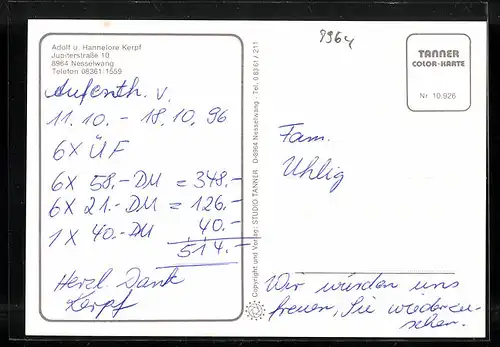 Adolf u. Hannelore Kerpf
Jupiterstraße 10
8964 Nesselwang
Telefon 08361/1559
Aufenth. v.
11.10. - 18.10.96
6x ÜF
6x 58.-DM = 348.-
6x 21.-DM = 126.-
1x 40.-DM 40.-
514.-
Herzl. Dank
Kerpf
Copyright und Verlag: STUDIO TANNER D-8964 Nesselwang · Tel. 08361/211
8964
TANNER
COLOR-KARTE
Nr 10.926
Fam.
Uhlig
Wir würden uns
freuen, Sie wiederzu-
sehen.